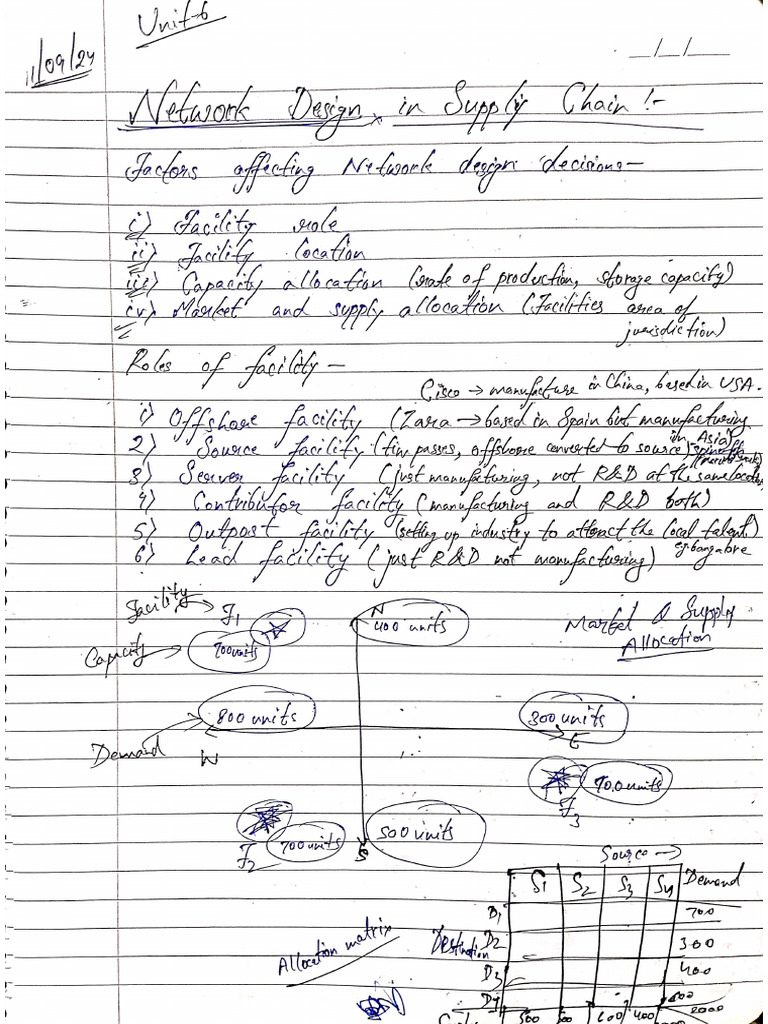 Unit-6
11/09/24
__/__/__
Network Design in Supply Chain :-
Factors affecting Network design decisions—
i) Facility role
ii) Facility location
iii) Capacity allocation (rate of production, storage capacity)
iv) Market and supply allocation (Facilities area of
jurisdiction)
Roles of facility —
Cisco → manufacture in China, based in USA.
1) Offshore facility (Zara → based in Spain but manufacturing
in Asia)
2) Source facility (time passes, offshore converted to source)
3) Server facility (just manufacturing, not R&D at the same location)
4) Contributor facility (manufacturing and R&D both)
5) Outpost facility (setting up industry to attract the local talent)
eg: bangalore
6) Lead facility (just R&D not manufacturing)
Facility → F1
N
400 units
Market & Supply
Allocation
Capacity → 700 units
800 units
300 units
E
Demand
W
700 units
F3
500 units
700 units
S
F2
Source →
S1 S2 S3 S4 Demand
D1 700
Allocation matrix
Destination D2 300
D3 400
D4 600
500 500 600 400 2000